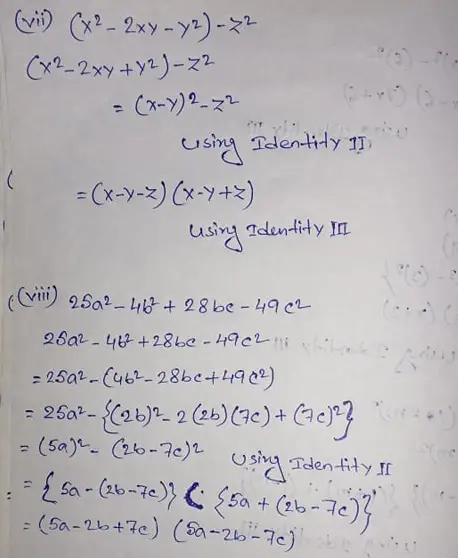 (vii) (x² - 2xy - y²) - z²
(x² - 2xy + y²) - z²
= (x-y)² - z²
Using Identity II
= (x-y-z) (x-y+z)
Using Identity III
(viii) 25a² - 4b² + 28bc - 49c²
25a² - 4b² + 28bc - 49c²
= 25a² - (4b² - 28bc + 49c²)
= 25a² - {(2b)² - 2(2b)(7c) + (7c)²}
= (5a)² - (2b - 7c)²
Using Identity II
= {5a - (2b - 7c)} {5a + (2b - 7c)}
= (5a - 2b + 7c) (5a - 2b - 7c)